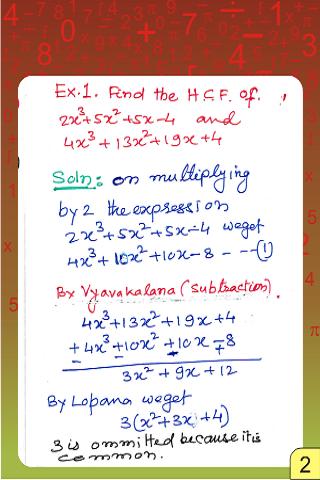 Ex.1. Find the H.C.F. of
2x³+5x²+5x-4 and
4x³+13x²+19x+4
Soln: on multiplying
by 2 the expression
2x³+5x²+5x-4 we get
4x³+10x²+10x-8 --- (1)
By Vyavakalana (subtraction).
4x³+13x²+19x+4
+4x³+10x²+10x-8
- - - +
3x²+9x+12
By Lopana we get
3(x²+3x+4)
3 is ommitted because it is
common.
2